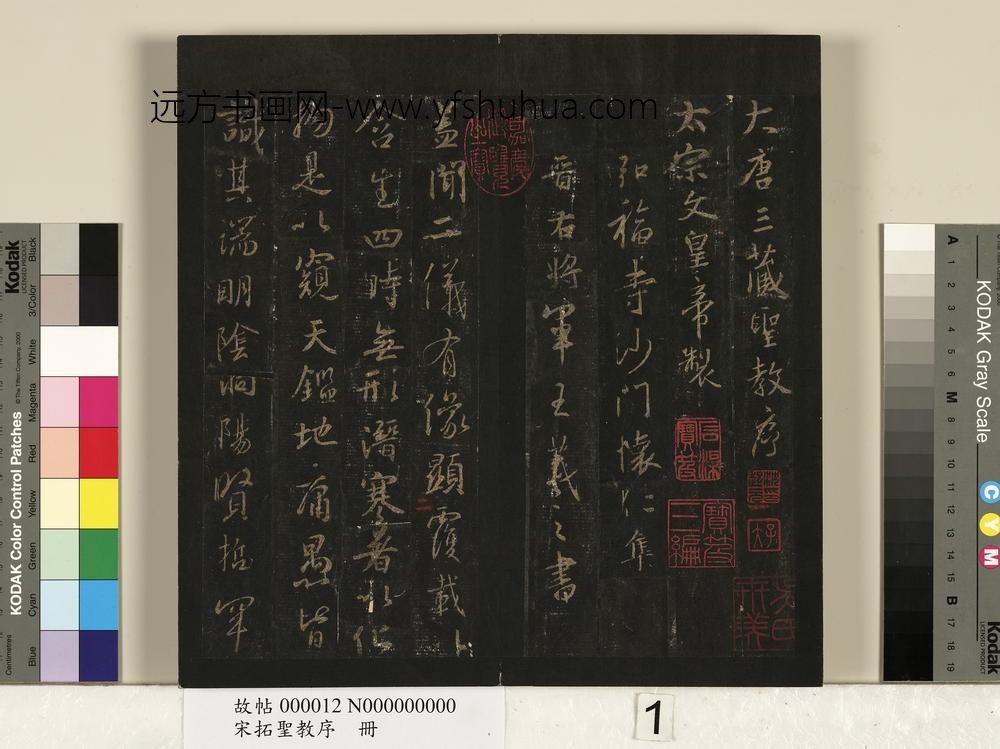 远方书画网-www.yfshuhua.com
大唐三藏聖教序
太宗文皇帝製
弘福寺沙門懷仁集
晉右將軍王羲之書
蓋聞二儀有像顯覆載以
含生四時無形潛寒暑以化
物是以窺天鑑地庸愚皆
識其端明陰洞陽賢哲罕
嘉慶御覽之寶
石渠寶笈
寶笈三編
故帖 000012 N000000000
宋拓聖教序 冊
1
Kodak
LICENSED PRODUCT
KODAK Color Control Patches
© The Tiffen Company, 2000
Centimetres
Blue
Cyan
Green
Yellow
Red
Magenta
White
3/Color
Black
KODAK Gray Scale
C
Y
M
Kodak
LICENSED PRODUCT
A
1
2
3
4
5
6
M
8
9
10
11
12
13
14
15
B
17
18
19